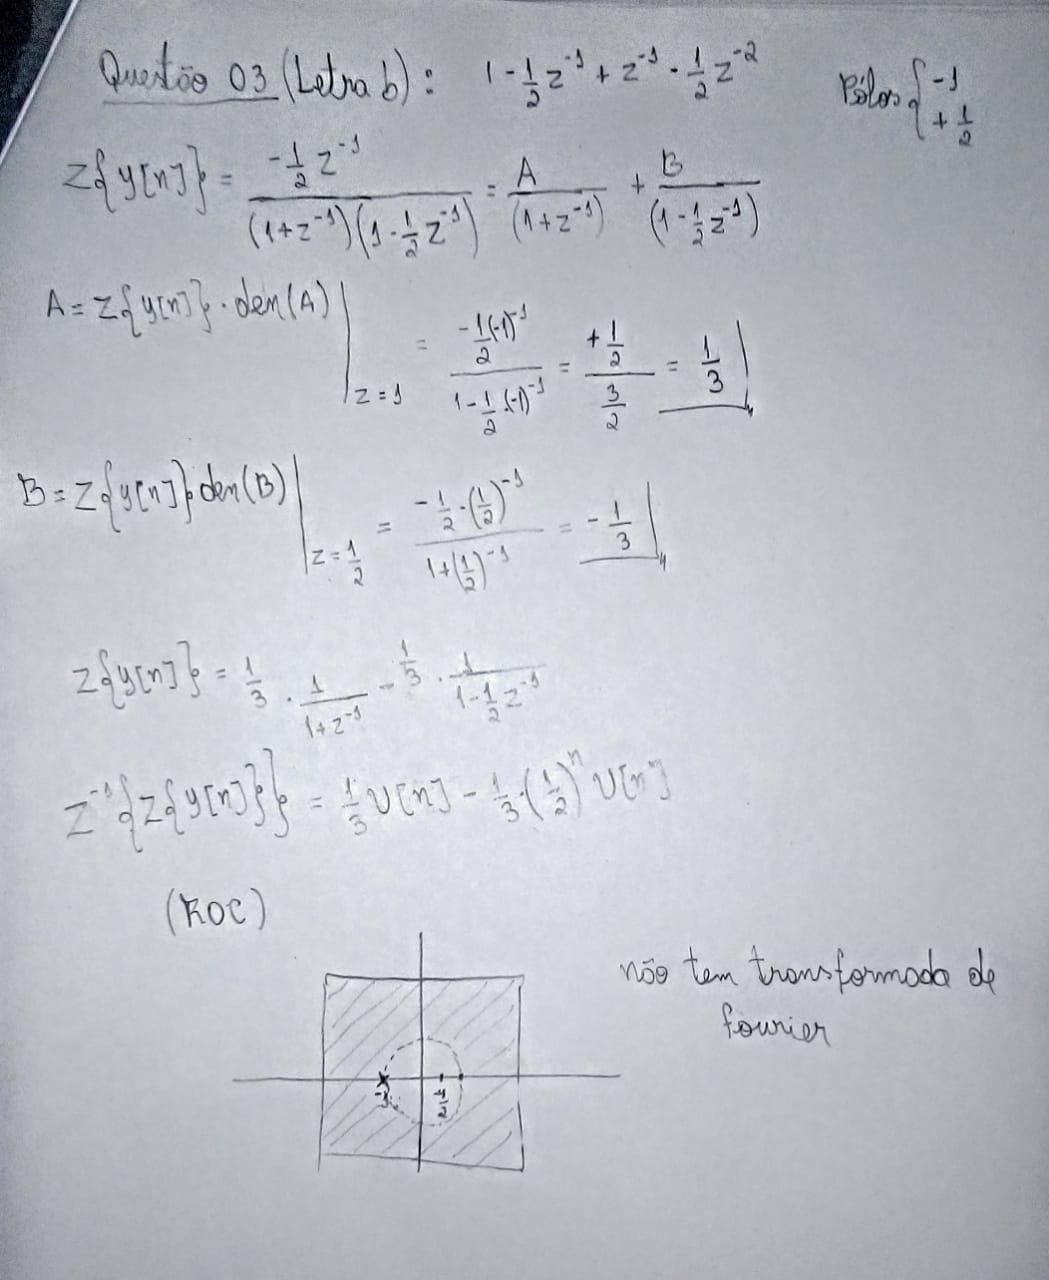 Questão 03 (Letra b): 1 - 1/2 z^-1 + z^-1 - 1/2 z^-2 Pólos { -1
+ 1/2
Z{y[n]} = (-1/2 z^-1) / ((1+z^-1)(1-1/2 z^-1)) = A/(1+z^-1) + B/(1-1/2 z^-1)
A = Z{y[n]} · den(A) | z=1 = (-1/2 (-1)^-1) / (1-1/2 · (-1)^-1) = (+1/2) / (3/2) = 1/3
B = Z{y[n]} den(B) | z=1/2 = (-1/2 · (1/2)^-1) / (1+(1/2)^-1) = -1/3
Z{y[n]} = 1/3 · 1/(1+z^-1) - 1/3 · 1/(1-1/2 z^-1)
Z^-1{Z{y[n]}} = 1/3 U[n] - 1/3 · (1/2)^n U[n]
(ROC)
não tem transformada de
fourier
-1
1/2